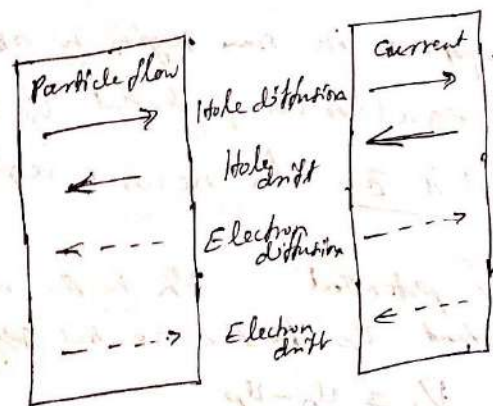 Particle flow
Current
Hole diffusion
Hole
drift
Electron
diffusion
Electron
drift